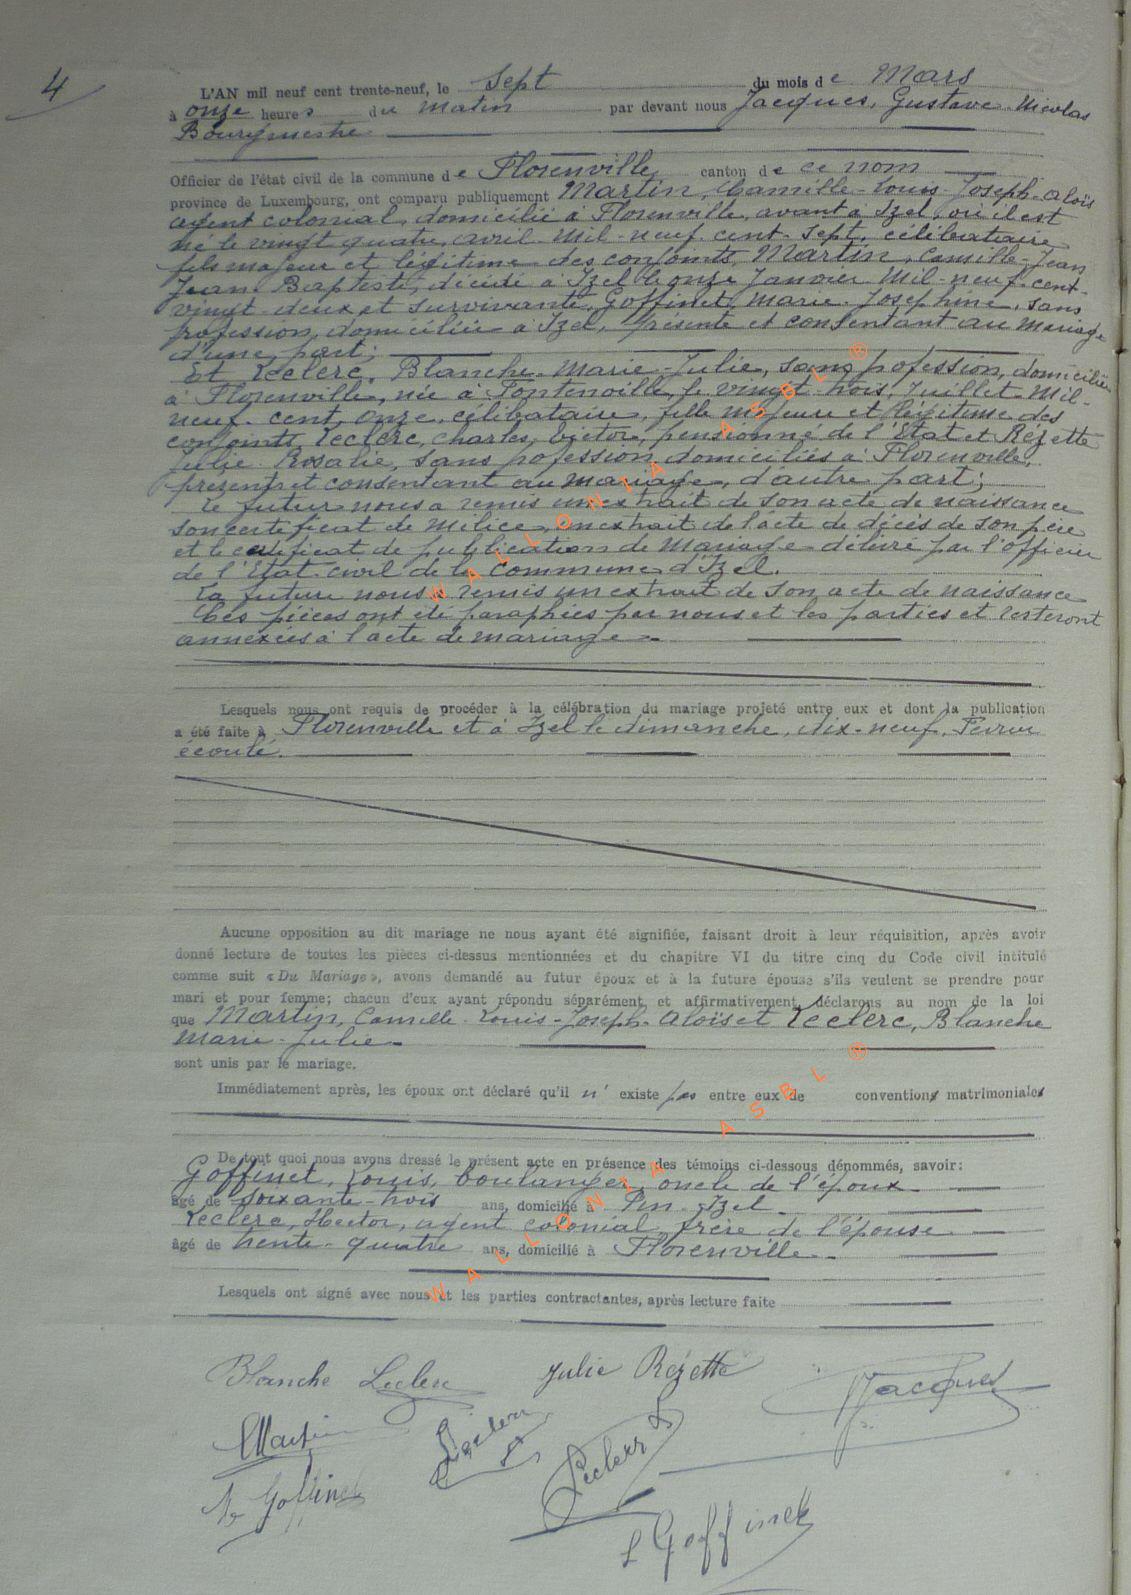 4
L'AN mil neuf cent trente-neuf, le Sept du mois de Mars
à onze heures du matin par devant nous Jacques, Gustave-Nicolas
Bourgmestre
Officier de l'état civil de la commune de Florenville canton de ce nom
province de Luxembourg, ont comparu publiquement Martin, Camille-Louis-Joseph-Aloïs
agent colonial, domicilié à Florenville, avant à Izel, où il est
né le vingt quatre, avril-Mil-neuf-cent-Sept, célibataire
fils majeur et légitime des conjoints, Martin, Camille-Jean
Jean Baptiste, décédé à Izel le onze Janvier Mil-neuf-cent-
vingt-deux et survivante, Goffinet, Marie-Joséphine, sans
profession, domiciliée à Izel, présente et consentant au mariage
d'une part;
Et Leclerc, Blanche-Marie-Julie, sans profession, domiciliée
à Florenville, née à Fontenoille, le vingt-trois, Juillet-Mil-
neuf-cent, onze, célibataire, fille majeure et légitime des
conjoints, Leclerc, Charles, Victor, pensionné de l'Etat et Rézette
Julie-Rosalie, sans profession, domiciliés à Florenville,
présents et consentant au mariage, d'autre part;
Le futur nous a remis un extrait de son acte de naissance
son certificat de milice, un extrait de l'acte de décès de son père
et le certificat de publication de Mariage délivré par l'officier
de l'Etat-civil de la commune d'Izel.
La future nous a remis un extrait de son acte de naissance
Ces pièces ont été paraphées par nous et les parties et resteront
annexées à l'acte de mariage
Lesquels nous ont requis de procéder à la célébration du mariage projeté entre eux et dont la publication
a été faite à Florenville et à Izel le dimanche, dix-neuf, Fevrier
écoulé.
Aucune opposition au dit mariage ne nous ayant été signifiée, faisant droit à leur réquisition, après avoir
donné lecture de toutes les pièces ci-dessus mentionnées et du chapitre VI du titre cinq du Code civil intitulé
comme suit « Du Mariage », avons demandé au futur époux et à la future épouse s'ils veulent se prendre pour
mari et pour femme; chacun d'eux ayant répondu séparément et affirmativement, déclarons au nom de la loi
que Martin, Camille-Louis-Joseph-Aloïs et Leclerc, Blanche
Marie-Julie
sont unis par le mariage.
Immédiatement après, les époux ont déclaré qu'il n'existe pas entre eux de conventions matrimoniales
De tout quoi nous avons dressé le présent acte en présence des témoins ci-dessous dénommés, savoir:
Goffinet, Louis, boulanger, oncle de l'époux
âgé de soixante-trois ans, domicilié à Pin-Izel
Leclerc, Hector, agent colonial frère de l'épouse
âgé de trente-quatre ans, domicilié à Florenville
Lesquels ont signé avec nous et les parties contractantes, après lecture faite
Blanche Leclerc Julie Rézette Jacques
CMartin Leclerc Leclerc
Goffinet L Goffinet
WALLONIA ASBL ®
WALLONIA ASBL ®